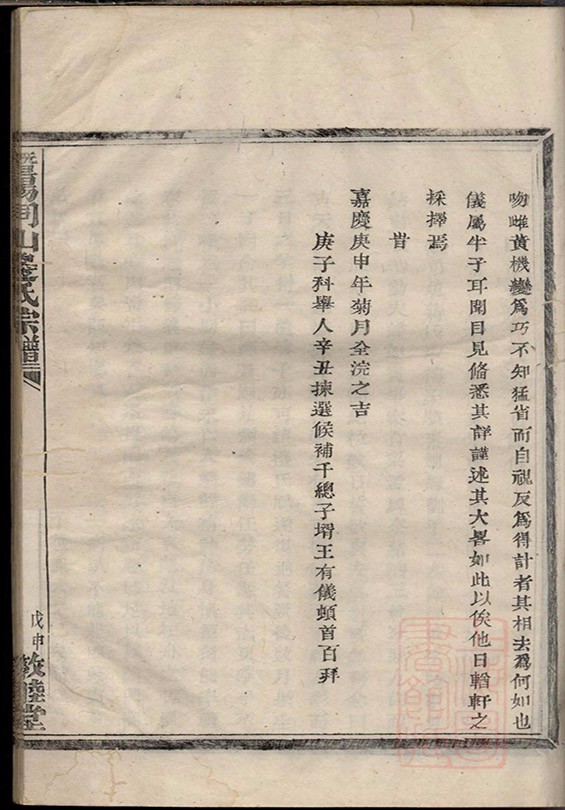 吻雌黃機變爲巧不知猛省而自視反爲得計者其相去爲何如也
儀屬半子耳聞目見脩悉其詳謹述其大畧如此以俟他日輶軒之
採擇焉
旹
嘉慶庚申年菊月全浣之吉
庚子科舉人辛丑揀選候補千總子壻王有儀頓首百拜
暨陽同山壽氏宗譜
戊申
敦睦堂